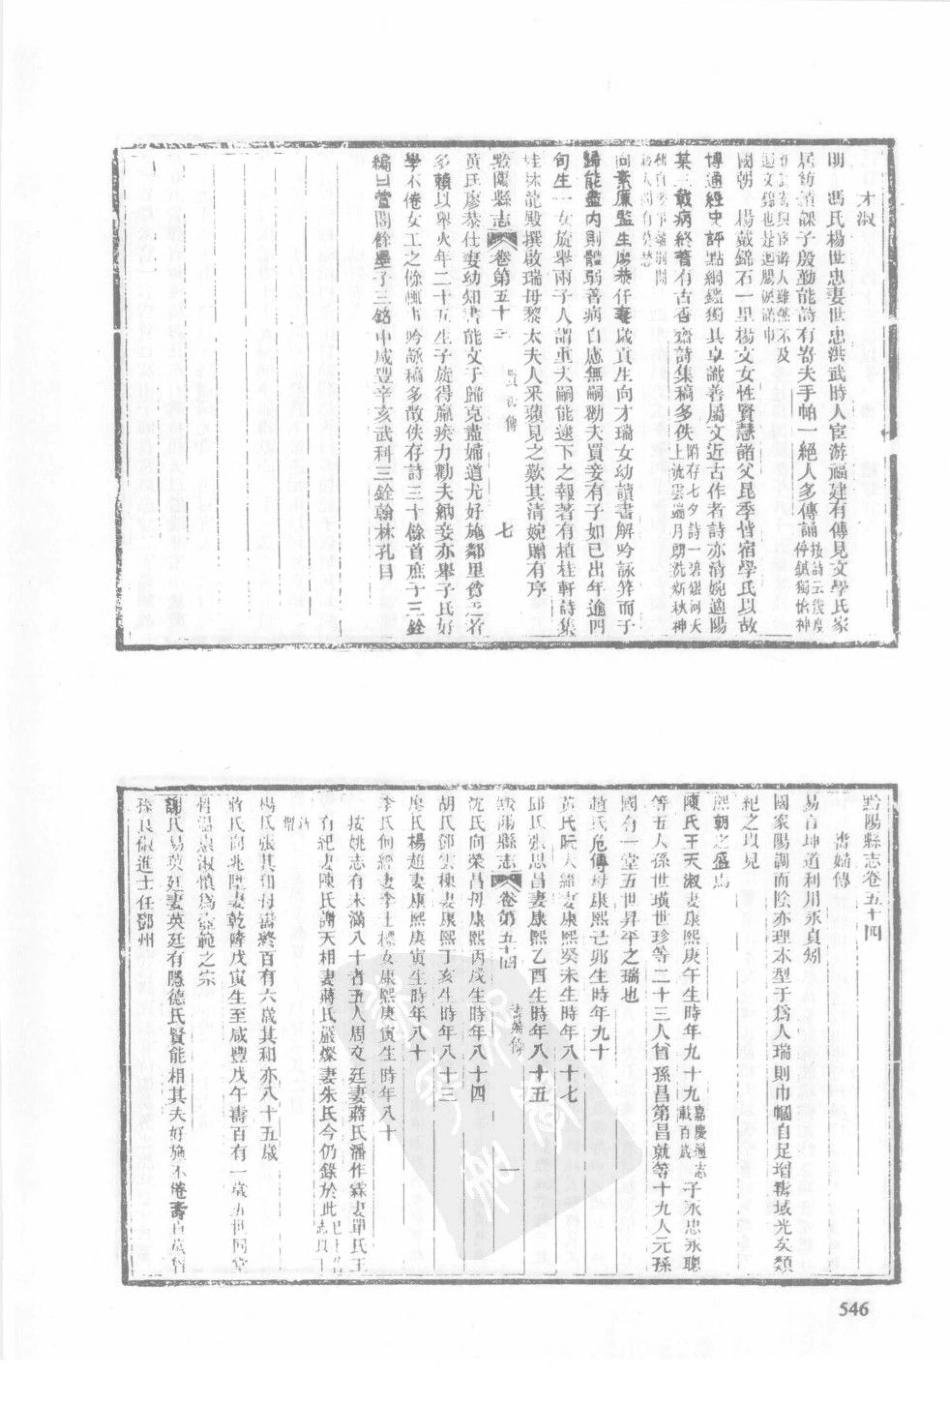 才淑
明 馮氏楊世忠妻世忠洪武時人宦游福建有傳見文學氏家
居紡績課子殷勤能詩有寄夫手帕一絕人多傳誦
國朝 楊蕺錦石一里楊文女性賢慧諸父昆季皆宿學氏以故
博通經史評點綱鑑獨具卓識善屬文近古作者詩亦清婉適陽
某三載病終舊有古香齋詩集稿多佚止存七夕詩一碧銀河天
上流雲端月朗洗新秋神
向素廉監生廖恭仟妻歲貢生向才瑞女幼讀書解吟詠笄而于
歸能盡內則體弱善病自慮無嗣勸夫買妾有子如已出年逾四
旬生一女旋舉兩子人謂重大嗣能逮下之報著有植桂軒詩集
娃林龍殿撰啟瑞母黎太夫人采蘋見之歎其清婉贈有序
黔陽縣志 卷第五十三 七
黃氏廖恭仕妻幼知書能文于歸克盡婦道尤好施鄰里貧乏者
多賴以舉火年二十五生子旋得羸疾力勸夫納妾亦舉子氏好
學不倦女工之餘吟詠稿多散佚存詩三十餘首庶子三銓
編曰萱閣餘墨子三銘中咸豐辛亥武科三銓翰林孔目
黔陽縣志卷五十四
壽婦傳
易言坤道利用永貞矧
國家陽調而陰亦理本型于為人瑞則巾幗自足增壽域光爰類
紀之以見
熙朝之盛焉
陳氏王天淑妻康熙庚午生時年九十九嘉慶通志載百歲子永忠永聰
等五人孫世璜世珍等二十三人曾孫昌第昌就等十九人元孫
國有一堂五世昇平之瑞也
趙氏危傳母康熙己卯生時年九十
黃氏阮大維妻康熙癸未生時年八十七
邱氏張思昌妻康熙乙酉生時年八十五
黔陽縣志 卷第五十四 壽婦傳 一
沈氏向榮昌母康熙丙戌生時年八十四
胡氏鄧雲棟妻康熙丁亥生時年八十三
廖氏楊趙妻康熙庚寅生時年八十
李氏何經妻李士標女康熙庚寅生時年八十
按姚志有未滿八十者五人周文廷妻蔣氏潘作霖妻單氏王
有紀妻陳氏謝天相妻蔣氏嚴燦妻朱氏今仍錄於此
楊氏張其和母壽終百有六歲其和亦八十五歲
蔣氏向兆陞妻乾隆戊寅生至咸豐戊午壽百有一歲五世同堂
性溫惠淑慎為壼範之宗
謝氏易英廷妻英廷有隱德氏賢能相其夫好施不倦壽百歲曾
孫良俶進士任鄧州
546